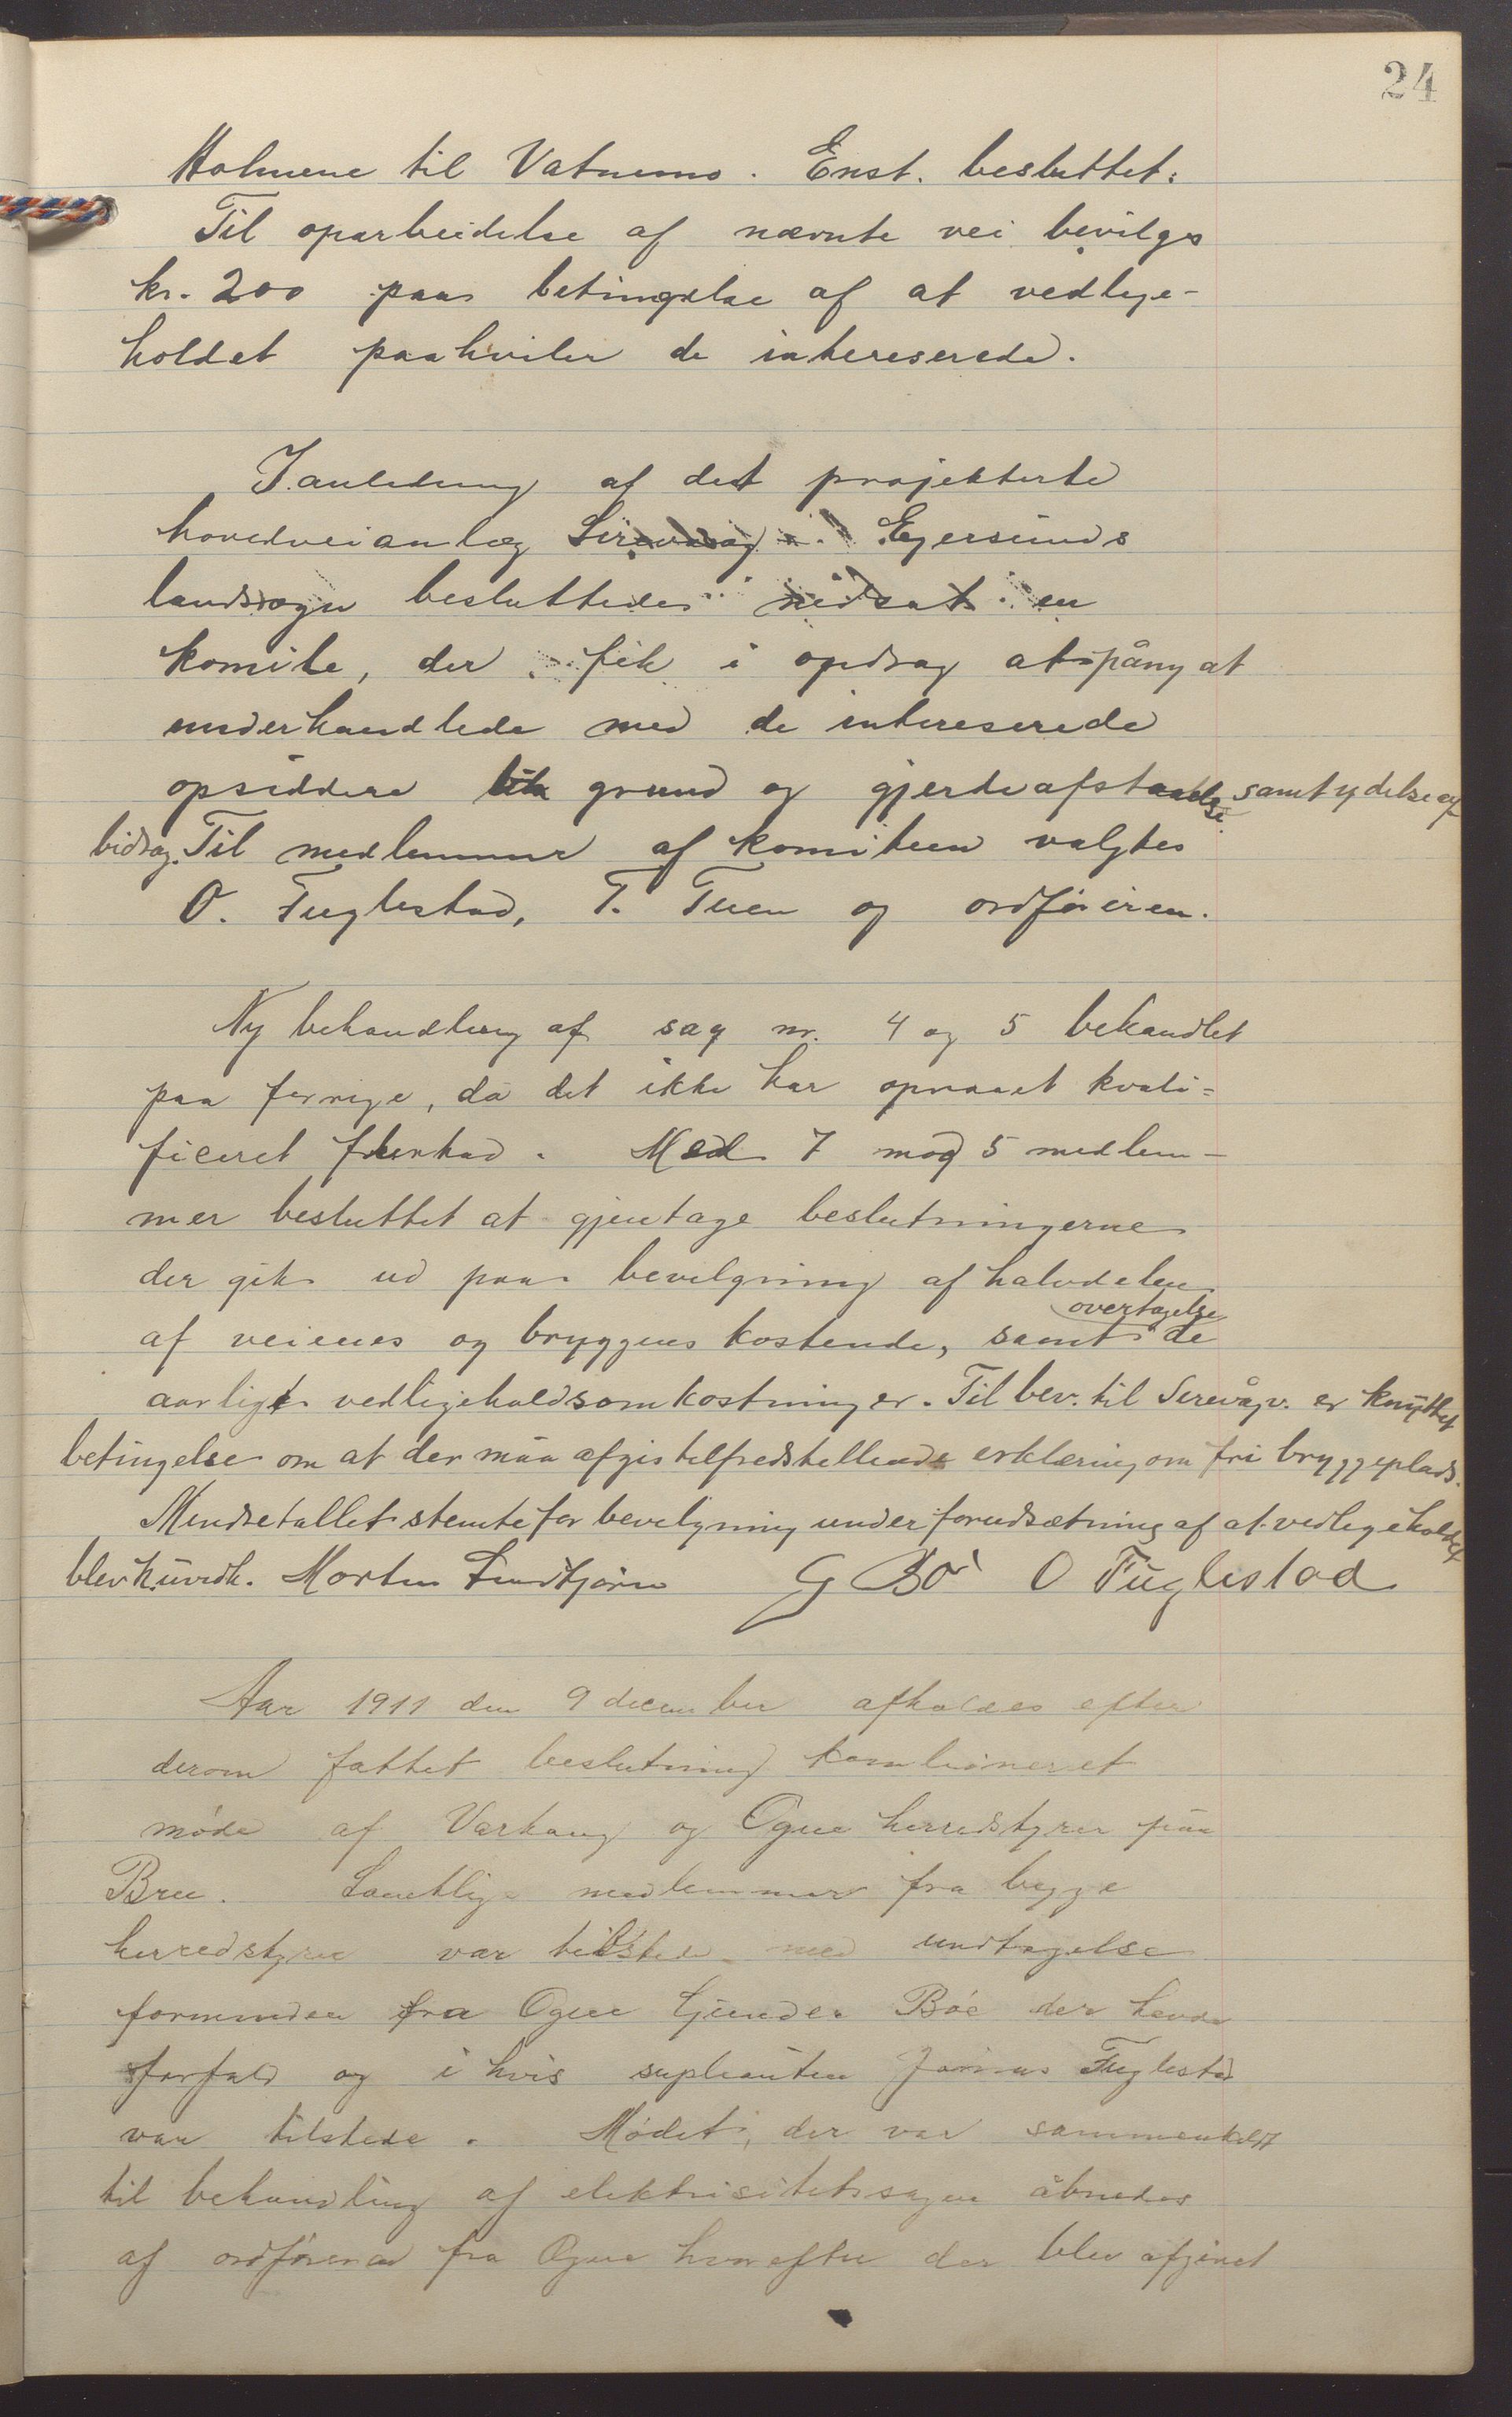 24
Holmene til Vatnemo. Enst. besluttet:
Til oparbeidelse af nævnte vei bevilges
kr. 200 paa betingelse af at vedlige-
holdet paahviler de intereserede.
I anledning af det projekterte
hovedveianlæg Sirevaag Egersunds
landsogn besluttedes nedsat en
komite, der fik i opdrag at påny at
underhandlede med de intereserede
opsiddere grund og gjerdeafstaaelse samt ydelse af
bidrag. Til medlemmer af komiteen valgtes
O. Fuglestad, T. Tuen og ordføreren.
Ny behandling af sag nr. 4 og 5 behandlet
paa forrige, da det ikke har opnaaet kvali-
ficeret flerhed. Med 7 mod 5 medlem-
mer besluttet at gjentage beslutningerne
der gik ud paa bevilgning af halvdelen
af veienes og bryggens kostende, samt overtagelse de
aarlige vedligeholdsomkostninger. Til bev. til Sirevåg v. er knyttet
betingelse om at der maa afgis tilfredstellende erklæring om fri bryggeplads.
Mindretallet stemte for bevilgning under forudsætning af at vedligeholdet
blev Morten G Bø O Fuglestad
Aar 1911 den 9 december afholdes efter
derom fattet beslutning kombineret
møde af Varhaug og Ogne herredstyrer paa
Brue. Samtlige medlemmer fra begge
herredstyrer var tilstede med undtagelse
formanden fra Ogne Gunder Bøe der havde
forfald og i hvis suplianten Jonas Fuglestad
var tilstede. Mødet, der var sammenkaldt
til behandling af elektrisitetssagen åbnedes
af ordføreren fra Ogne hvorefter der blev afgivet